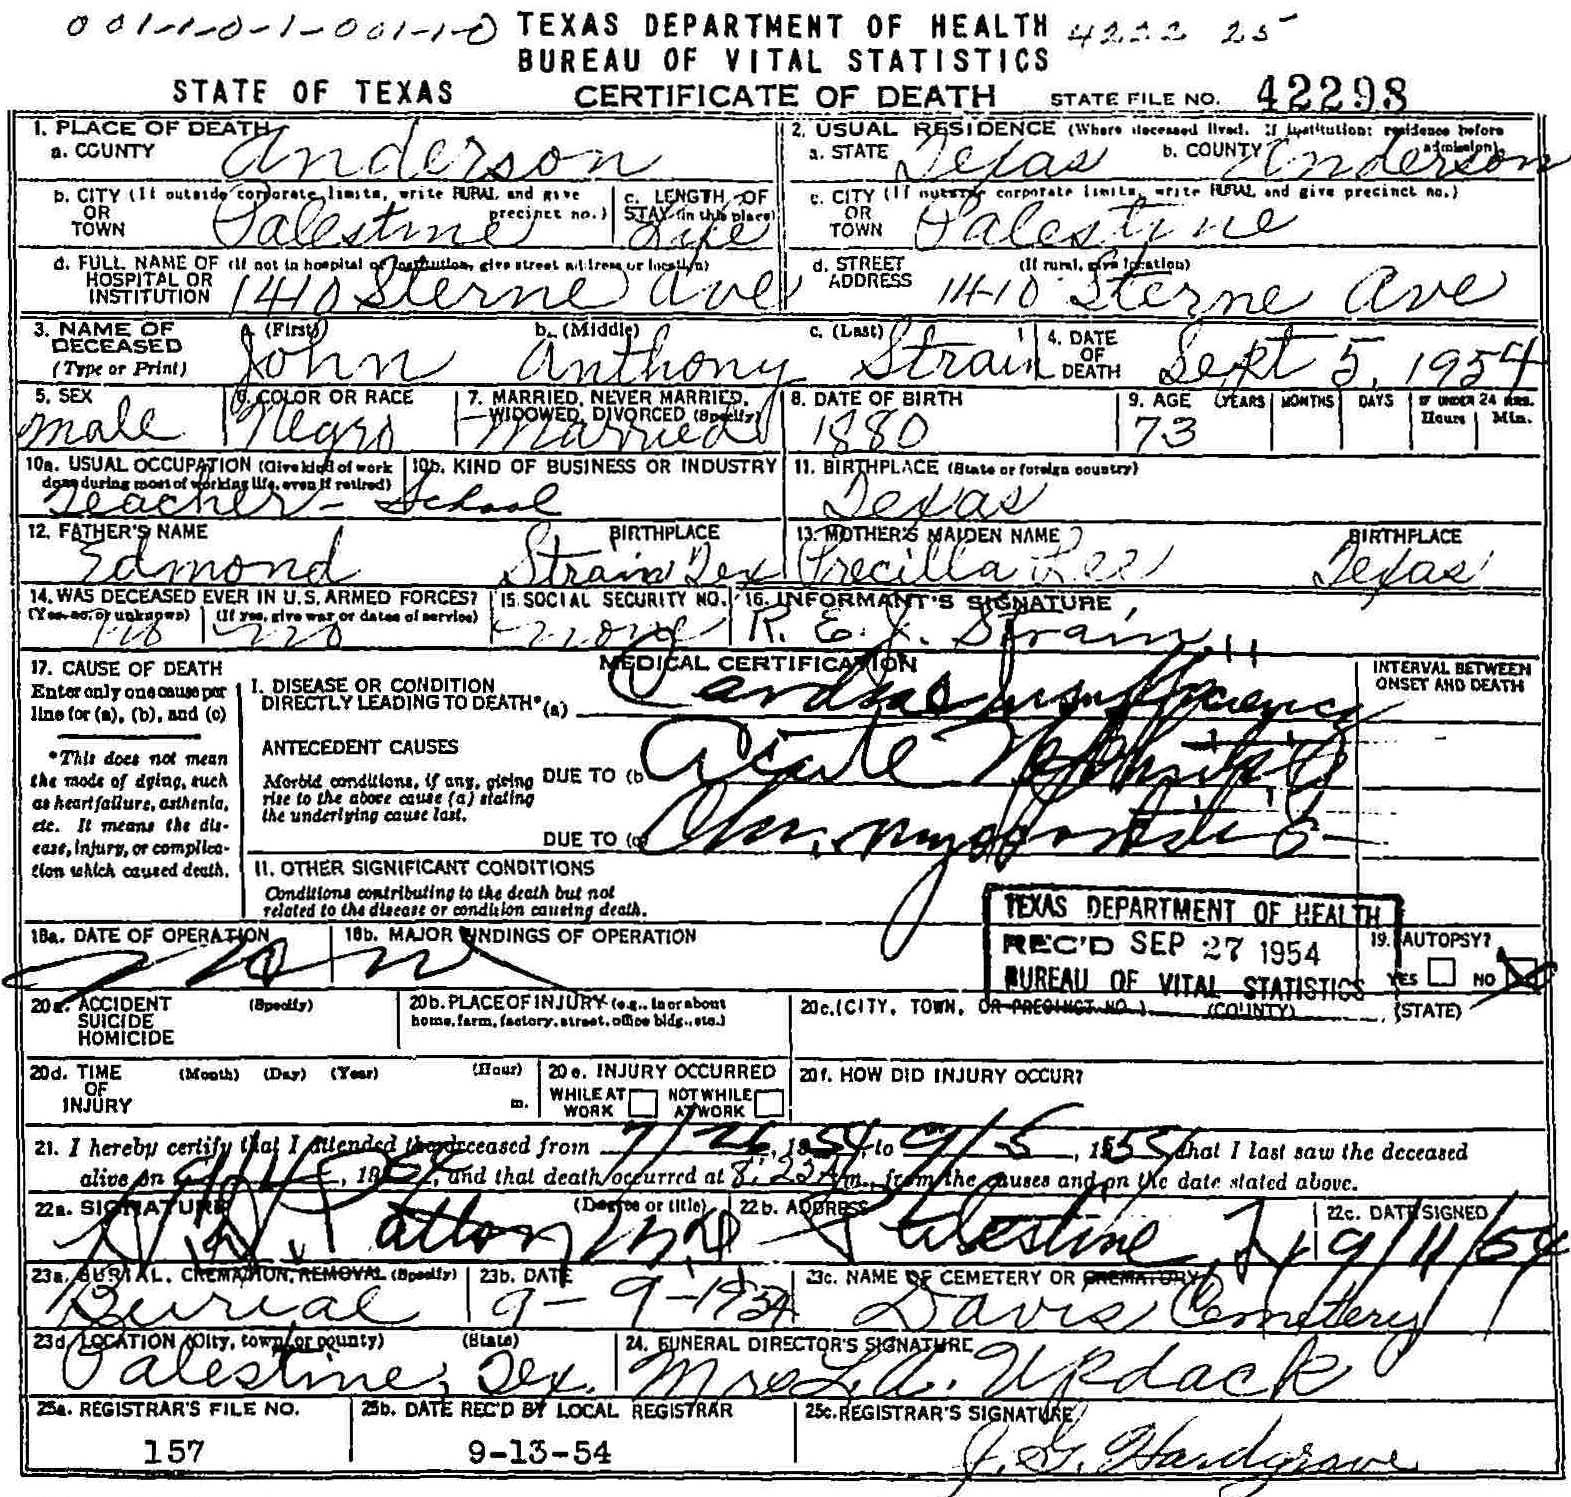 001-1-0-1-001-1-0 TEXAS DEPARTMENT OF HEALTH 4222 25
BUREAU OF VITAL STATISTICS
STATE OF TEXAS CERTIFICATE OF DEATH STATE FILE NO. 42298
1. PLACE OF DEATH
a. COUNTY Anderson
2. USUAL RESIDENCE (Where deceased lived. If institution: residence before admission)
a. STATE Texas b. COUNTY Anderson
b. CITY (If outside corporate limits, write RURAL and give precinct no.)
OR
TOWN Palestine
c. LENGTH OF
STAY (in this place)
Life
c. CITY (If outside corporate limits, write RURAL and give precinct no.)
OR
TOWN Palestine
d. FULL NAME OF (If not in hospital or institution, give street address or location)
HOSPITAL OR
INSTITUTION 1410 Sterne Ave
d. STREET (If rural, give location)
ADDRESS 1410 Sterne Ave
3. NAME OF DECEASED
(Type or Print)
a. (First) b. (Middle) c. (Last)
John Anthony Strain
4. DATE OF DEATH Sept 5, 1954
5. SEX
male
6. COLOR OR RACE
Negro
7. MARRIED, NEVER MARRIED, WIDOWED, DIVORCED (Specify)
Married
8. DATE OF BIRTH
1880
9. AGE (YEARS MONTHS DAYS IF UNDER 24 HRS. Hours Min.
73
10a. USUAL OCCUPATION (Give kind of work done during most of working life, even if retired)
10b. KIND OF BUSINESS OR INDUSTRY
Teacher - School
11. BIRTHPLACE (State or foreign country)
Texas
12. FATHER'S NAME BIRTHPLACE
Edmond Strain Tex
13. MOTHER'S MAIDEN NAME BIRTHPLACE
Precilla Lee Texas
14. WAS DECEASED EVER IN U.S. ARMED FORCES?
(Yes, no, or unknown) (If yes, give war or dates of service)
no no
15. SOCIAL SECURITY NO.
none
16. INFORMANT'S SIGNATURE
R. E. J. Strain
17. CAUSE OF DEATH
Enter only one cause per
line for (a), (b), and (c)
*This does not mean
the mode of dying, such
as heart failure, asthenia,
etc. It means the dis-
ease, injury, or complica-
tion which caused death.
MEDICAL CERTIFICATION
INTERVAL BETWEEN
ONSET AND DEATH
I. DISEASE OR CONDITION
DIRECTLY LEADING TO DEATH* (a) Cardiac Insufficiency
ANTECEDENT CAUSES
Morbid conditions, if any, giving
rise to the above cause (a) stating
the underlying cause last.
DUE TO (b) Acute Nephritis
DUE TO (c) Chr. myocarditis
II. OTHER SIGNIFICANT CONDITIONS
Conditions contributing to the death but not
related to the disease or condition causing death.
TEXAS DEPARTMENT OF HEALTH
REC'D SEP 27 1954
BUREAU OF VITAL STATISTICS
18a. DATE OF OPERATION
18b. MAJOR FINDINGS OF OPERATION
19. AUTOPSY?
YES NO
20a. ACCIDENT (Specify)
SUICIDE
HOMICIDE
20b. PLACE OF INJURY (e.g., in or about
home, farm, factory, street, office bldg., etc.)
20c. (CITY, TOWN, OR PRECINCT NO.) (COUNTY) (STATE)
20d. TIME (Month) (Day) (Year) (Hour)
OF
INJURY m.
20e. INJURY OCCURRED
WHILE AT WORK NOT WHILE AT WORK
20f. HOW DID INJURY OCCUR?
21. I hereby certify that I attended the deceased from 7/26, 1954, to 9/5, 1955, that I last saw the deceased
alive on 9/4, 1954, and that death occurred at 8:23 A m., from the causes and on the date stated above.
22a. SIGNATURE (Degree or title)
Patton MD
22b. ADDRESS
Palestine, Tx
22c. DATE SIGNED
9/11/54
23a. BURIAL, CREMATION, REMOVAL (Specify)
Burial
23b. DATE
9-9-1954
23c. NAME OF CEMETERY OR CREMATORY
Davis Cemetery
23d. LOCATION (City, town, or county) (State)
Palestine, Tex.
24. FUNERAL DIRECTOR'S SIGNATURE
Mrs L. A. Updack
25a. REGISTRAR'S FILE NO.
157
25b. DATE REC'D BY LOCAL REGISTRAR
9-13-54
25c. REGISTRAR'S SIGNATURE
J. G. Hardgrave